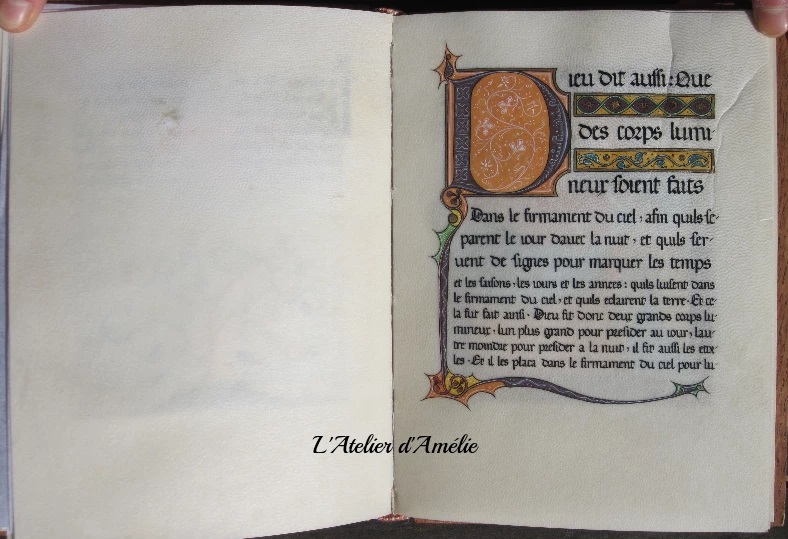 Dieu dit aussi: Que
des corps lumi-
neux soient faits
Dans le firmament du ciel, afin quils se-
parent le iour dauec la nuit, et quils ser-
uent de signes pour marquer les temps
et les saisons, les iours et les annees: quils luisent dans
le firmament du ciel, et quils eclairent la terre. Et ce-
la fut fait ainsi. Dieu fit donc deux grands corps lu-
mineux, lun plus grand pour presider au iour, lau-
tre moindre pour presider a la nuit, il fit aussi les etoi-
les. Et il les placa dans le firmament du ciel pour lu
L'Atelier d'Amélie